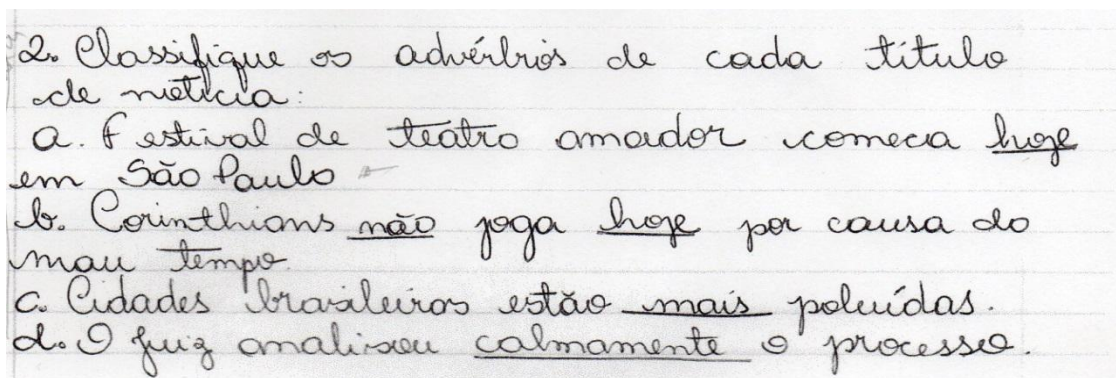 2. Classifique os advérbios de cada título
de notícia:
a. Festival de teatro amador começa hoje
em São Paulo
b. Corinthians não joga hoje por causa do
mau tempo.
c. Cidades brasileiras estão mais poluídas.
d. O juiz analisou calmamente o processo.